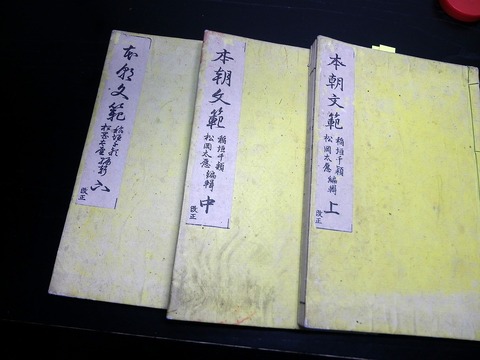 本朝文範
稲垣千穎
松岡太愿
編輯
上
改正
本朝文範
稲垣千穎
松岡太愿
編輯
中
改正
本朝文範
稲垣千穎
松岡太愿
編輯
下
改正